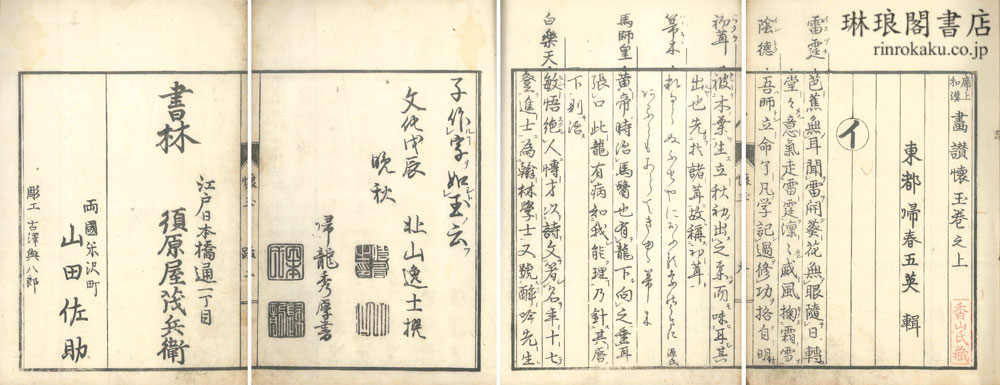 琳琅閣書店
rinrokaku.co.jp
席上
和漢 畫讃懐玉巻之上
東都 帰春五英 輯
香山氏藏
イ
雷霆 芭蕉無耳聞雷開葵花無眼隨日轉
堂々意氣走雷霆凛々威風掬霜雪
陰德 吾師立命了凡学記過修功格自明
初茸 被木葉生立秋初出之柔而味耳其
出也先於諸茸故稱初茸
箒木
馬師皇 黄帝時治馬醫也有龍下向之垂耳
張口此龍有病知我能理乃針其唇
下則治
白樂天 敏悟絶人博才以詩文著名年十七
登進士為翰林學士又號醉吟先生
子作字如玉云
文化甲辰
晩秋 北山逸士撰
帰龍秀摩書
書林
江戸日本橋通一丁目
須原屋茂兵衛
両國米沢町
山田佐助
彫工 古澤與八郎